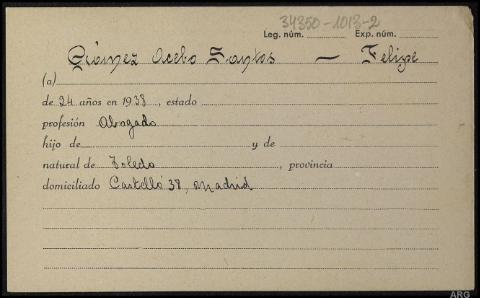 34350-1013-2
Leg. núm. Exp. núm.
Gómez Acebo Santos — Felipe
(a)
de 24 años en 1938, estado
profesión Abogado
hijo de y de
natural de Toledo, provincia
domiciliado Castelló 38, Madrid
ARG